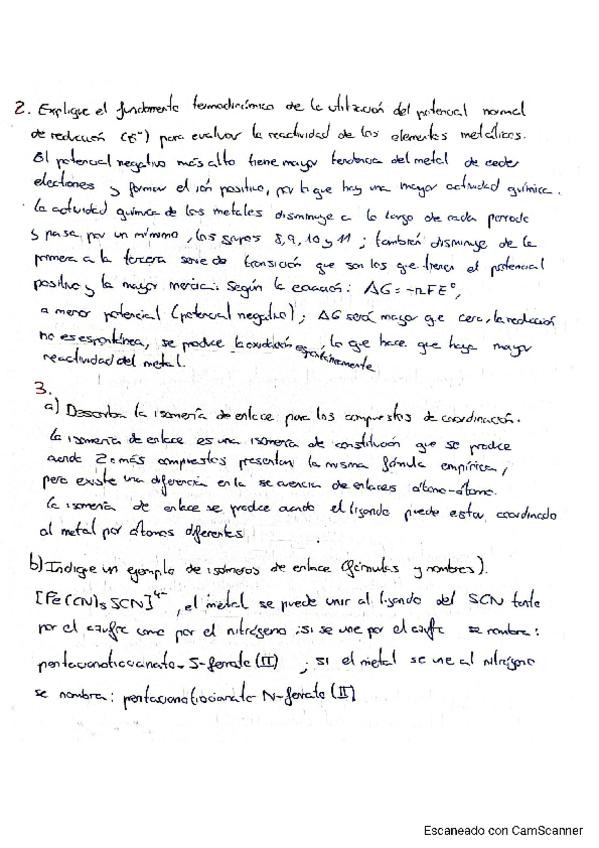 2. Explique el fundamento termodinámico de la utilización del potencial normal
de reducción (E°) para evaluar la reactividad de los elementos metálicos.
El potencial negativo más alto tiene mayor tendencia del metal de ceder
electrones y formar el ión positivo, por lo que hay una mayor actividad química.
La actividad química de los metales disminuye a lo largo de cada periodo
y pasa por un mínimo, los grupos 8, 9, 10 y 11; también disminuye de la
primera a la tercera serie de transición que son los que tienen el potencial
positivo y la mayor inercia. Según la ecuación: ΔG = -nFE°,
a menor potencial (potencial negativo); ΔG será mayor que cero, la reducción
no es espontánea, se produce la oxidación espontáneamente, lo que hace que haya mayor
reactividad del metal.
3.
a) Describa la isomería de enlace para los compuestos de coordinación.
La isomería de enlace es una isomería de constitución que se produce
cuando 2 o más compuestos presentan la misma fórmula empírica,
pero existe una diferencia en la secuencia de enlaces átomo-átomo.
La isomería de enlace se produce cuando el ligando puede estar coordinado
al metal por átomos diferentes
b) Indique un ejemplo de isómeros de enlace (fórmulas y nombres).
[Fe(CN)5SCN]4-, el metal se puede unir al ligando del SCN tanto
por el azufre como por el nitrógeno; si se une por el azufre se nombra:
pentacianotiocianato-S-ferrato (II) ; si el metal se une al nitrógeno
se nombra: pentacianotiocianato N-ferrato (II)
Escaneado con CamScanner